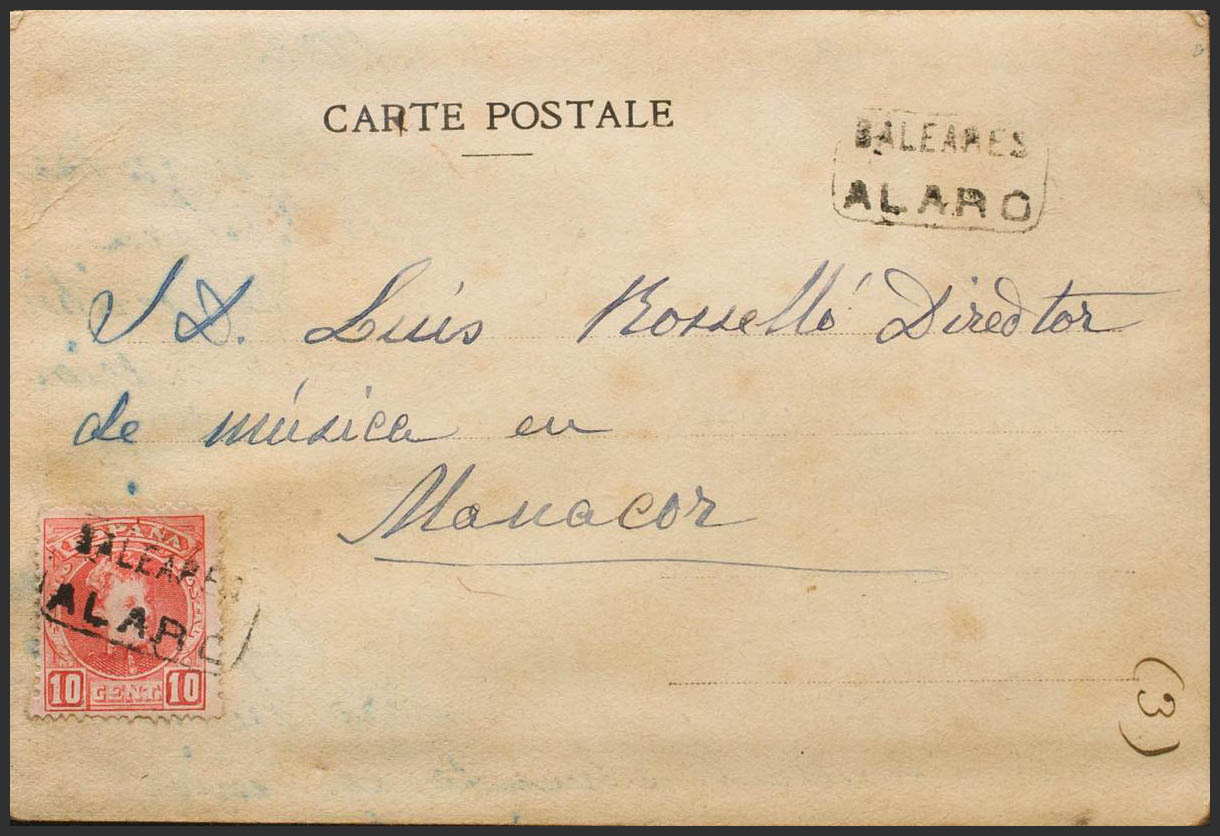 CARTE POSTALE
BALEARES
ALARO
S D. Luis Rosselló Director
de música en
Manacor
ESPAÑA
BALEARES
ALARO
10 CENT. 10
(3)